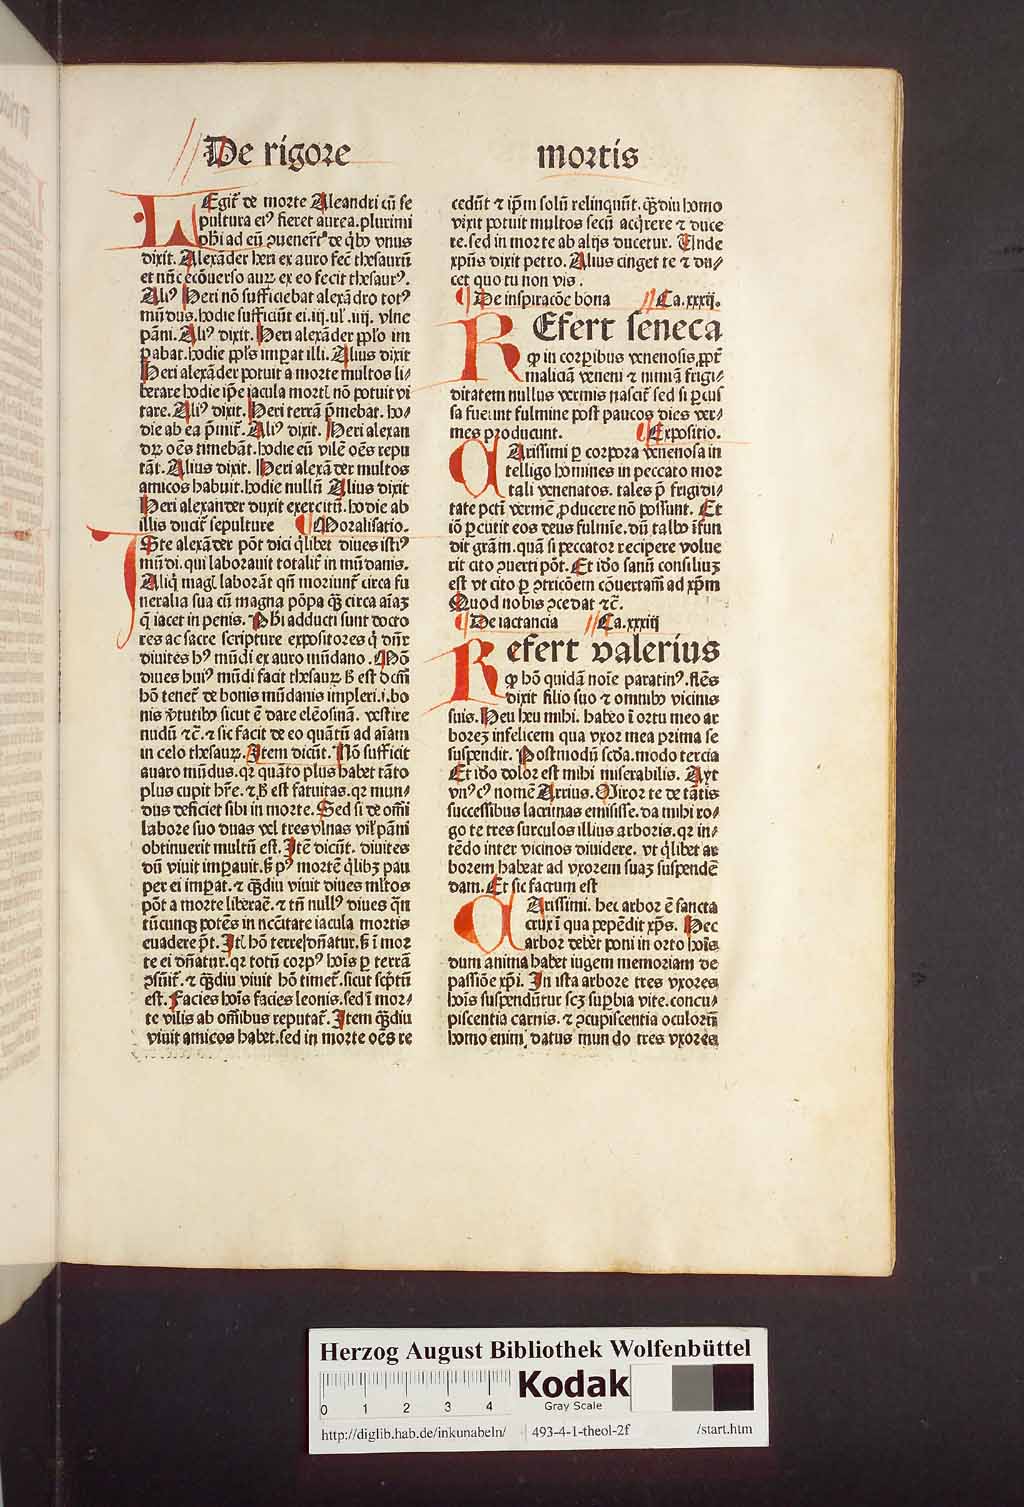 De rigore mortis
LEgit̃ de morte Aleandri cũ se
pultura ei⁹ fieret aurea. plurimi
ph̃i ad eũ ꝯuenerũt de q̈bꝰ vnus
dixit. Alexãder heri ex auro fec̃ thesaurũ
et nũc ecõuerso auꝝ ex eo fecit thesaur⁹.
Ali⁹ Heri nõ sufficiebat alexãdro tot⁹
mũdus. hodie sufficiũt ei .iij. ul̃ .iiij. vlne
pãni. Ali⁹ dixit. Heri alexãder pp̃lo im
ꝑabat. hodie pp̃ls imꝑat illi. Alius dixit
Heri alexãder potuit a morte multos li⸗
berare hodie ip̃e iacula mortl̃ nõ potuit vi
tare. Ali⁹ dixit. Heri terrã p̃mebat. ho⸗
die ab ea p̃mit̃. Ali⁹ dixit. Heri alexan
dꝝ oẽs timebãt. hodie eũ vilẽ oẽs repu
tãt. Alius dixit. Heri alexãder multos
amicos habuit. hodie nullũ Alius dixit
Heri alexander duxit exercitũ. hodie ab
illis ducit̃ sepulture ¶ Moralisatio.
ISte alexãder põt dici q̃libet diues isti⁹
mũdi. qui laborauit totalit̃ in mũdanis.
Aliq̃ magl̃ laborãt qñ moriunt̃ circa fu
neralia sua cũ magna põpa qꝫ circa aĩaꝫ
q̃ iacet in penis. Ph̃i adducti sunt docto
res ac sacre scripture expositores q̃ dñr
diuites h⁹ mũdi ex auro mũdano. Mõ
diues hui⁹ mũdi facit thesauꝝ ꝫ est dcm̃
hõ tenet̃ de bonis mũdanis impleri .i. bo
nis v̾tutibꝰ sicut ẽ dare elẽosinã. vestire
nudũ ⁊c̃. ⁊ sic facit de eo quãtũ ad aĩam
in celo thesauꝝ. Item dicũt. Nõ sufficit
auaro mũdus. qꝛ quãto plus habet tãto
plus cupit hr̃e. ⁊ ꝫ est fatuitas. qꝛ mun⸗
dus deficiet sibi in morte. Sed si de om̃i
labore suo duas vel tres vlnas vil̾ pãni
obtinuerit multũ est. Itẽ dicũt. diuites
dũ viuit imꝑauit. ꝫ p⁹ mortẽ q̃libꝫ pau
per ei imꝑat. ⁊ qꝫdiu viuit diues ml̃tos
põt a morte liberaẽ. ⁊ tñ null⁹ diues q̃n
tũcunqꝫ potẽs in nc̃citate iacula mortis
euadere p̃t. Itl̃ hõ terre dñatur. ꝫ ĩ mor
te ei dñatur. qꝛ totũ corp⁹ hoĩs ꝑ terrã
ꝯsũit̃. ⁊ qꝫdiu viuit hõ timet̃. sicut scp̃tũ
est. Facies hoĩs facies leonis. sed ĩ mor⸗
te vilis ab om̃ibus reputat̃. Item qꝫdiu
viuit amicos habet. sed in morte oẽs re
cedũt ⁊ ip̃m solũ relinquũt. qꝫdiu homo
vixit potuit multos secũ acq̃rere ⁊ duce
re. sed in morte ab alijs ducetur. Unde
xp̃us dixit petro. Alius cinget te ⁊ du⸗
cet quo tu non vis.
¶ De inspiracõe bona ¶ Ca. xxxij.
REfert seneca
ꝙ in corꝑibus venenosis, ꝓpt̃
maliciã veneni ⁊ nimiã frigi⸗
ditatem nullus vermis nascit̃ sed si ꝑcus
sa fuerint fulmine post paucos dies ver⸗
mes producunt. ¶ Expositio.
CArissimi ꝑ corpora venenosa in
telligo homines in peccato mor
tali venenatos. tales p̃ frigidi⸗
tate pctĩ vermẽ ꝓducere nõ possunt. Et
iõ ꝑcutit eos deus fulmĩe. dũ talibꝰ ĩfun
dit grãm. quã si peccator recipere volue
rit cito ꝯuerti põt. Et iõo sanũ consiliuꝫ
est vt cito ꝑ ꝯtricõem cõuertam̃ ad xp̃m
Quod nobis ꝯcedat ⁊c̃.
¶ De iactancia ¶ Ca. xxxiij
Refert valerius
ꝙ hõ quidã noĩe paratin⁹. flẽs
dixit filio suo ⁊ omnibꝰ vicinis
suis. Heu heu mihi. habeo ĩ ortu meo ar
boreꝫ infelicem qua vxor mea prima se
suspendit. Postmodũ scd̃a. modo tercia
Et iõo dolor est mihi miserabilis. Ayt
vn⁹ c⁹ nomẽ Arrius. Miror te de tãtis
successibus lacrimas emisisse. da mihi ro⸗
go te tres surculos illius arboris. qꝛ in⸗
tẽdo inter vicinos diuidere. vt q̃libet ar
borem habeat ad vxorem suaꝫ suspendẽ
dam. Et sic factum est
CArissimi. hec arbor ẽ sancta
crux ĩ qua pepẽdit xp̃s. Hec
arbor debet poni in orto hoĩs
dum anima habet iugem memoriam de
passiõe xp̃i. In ista arbore tres vxores
hoĩs suspendũtur scꝫ suꝑbia vite. concu⸗
piscentia carnis. ⁊ ꝯcupiscentia oculorũ
homo enim datus mundo tres vxores
Herzog August Bibliothek Wolfenbüttel
0 1 2 3 4
Kodak
Gray Scale
http://diglib.hab.de/inkunabeln/ 493-4-1-theol-2f /start.htm